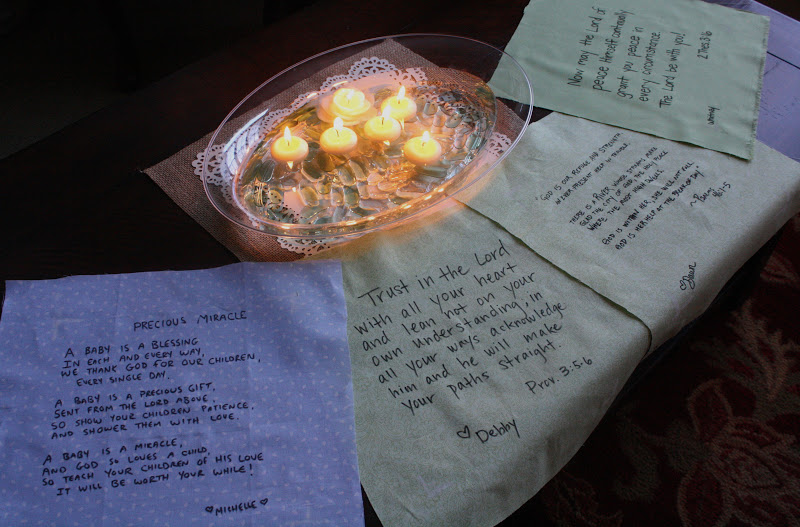 PRECIOUS MIRACLE
A BABY IS A BLESSING
IN EACH AND EVERY WAY,
WE THANK GOD FOR OUR CHILDREN,
EVERY SINGLE DAY.
A BABY IS A PRECIOUS GIFT,
SENT FROM THE LORD ABOVE,
SO SHOW YOUR CHILDREN PATIENCE,
AND SHOWER THEM WITH LOVE.
A BABY IS A MIRACLE,
AND GOD SO LOVES A CHILD,
SO TEACH YOUR CHILDREN OF HIS LOVE
IT WILL BE WORTH YOUR WHILE!
♡ MICHELLE ♡
Trust in the Lord
with all your heart
and lean not on your
own understanding, in
all your ways acknowledge
him and he will make
your paths straight.
Prov. 3:5-6
♡ Debby
GOD IS OUR REFUGE AND STRENGTH
AN EVER PRESENT HELP IN TROUBLE.
THERE IS A RIVER WHOSE STREAMS MAKE
GLAD THE CITY OF GOD, THE HOLY PLACE
WHERE THE MOST HIGH DWELLS.
GOD IS WITHIN HER, SHE WILL NOT FALL.
GOD IS HER HELP AT THE BREAK OF DAY.
~ Psalm
46:1-5
Now may the Lord of
peace Himself continually
grant you peace in
every circumstance.
The Lord be with you!
2 Thes 3:16